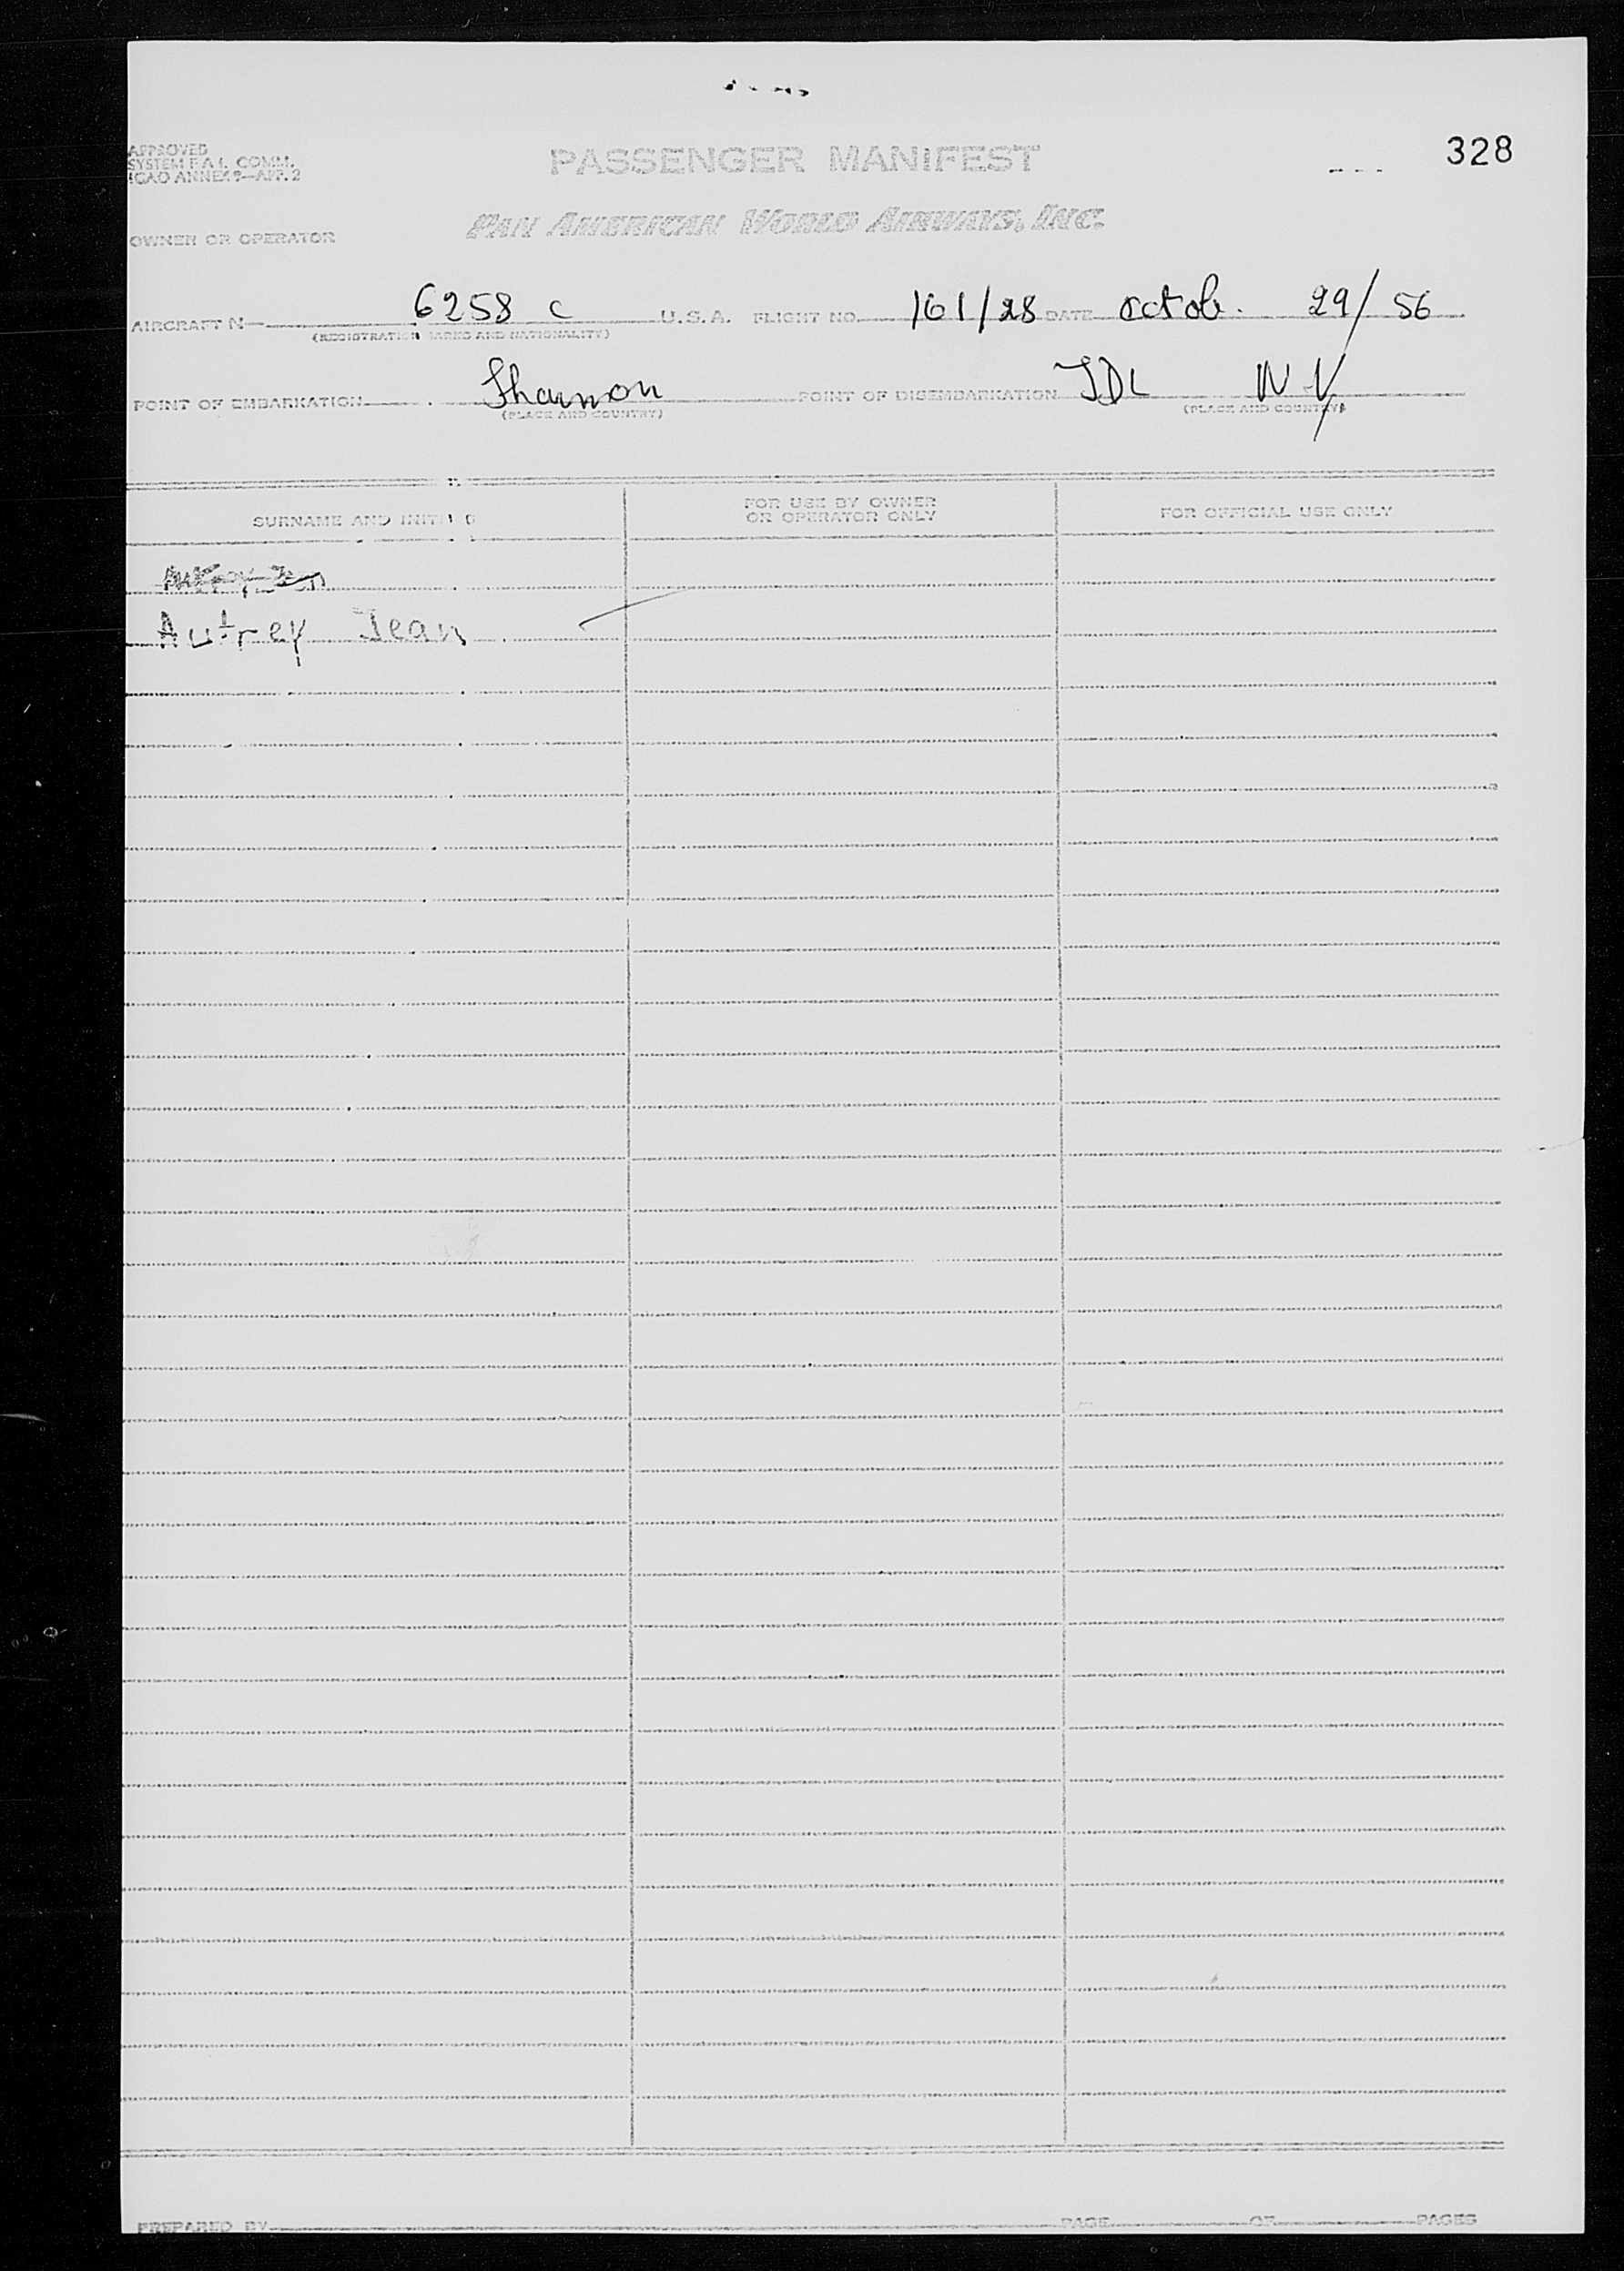 328
APPROVED
SYSTEM F.A.L. COMM.
ICAO ANNEX 9—APP. 2
PASSENGER MANIFEST
OWNER OR OPERATOR PAN AMERICAN WORLD AIRWAYS, INC.
AIRCRAFT N— 6258 C U.S.A. FLIGHT NO. 161/28 DATE Octob. 29/56
(REGISTRATION MARKS AND NATIONALITY)
POINT OF EMBARKATION Shannon POINT OF DISEMBARKATION IDL N.Y
(PLACE AND COUNTRY) (PLACE AND COUNTRY)
SURNAME AND INITIALS FOR USE BY OWNER OR OPERATOR ONLY FOR OFFICIAL USE ONLY
Autrey Jean
PREPARED BY PAGE OF PAGES